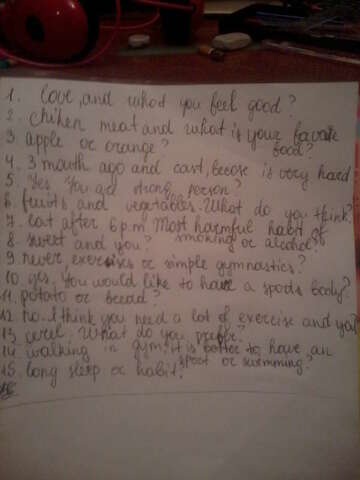 1. love, and what you feel good?
2. chiken meat and what is your favorite food?
3. apple or orange?
4. 3 mouth ago and cant, becose is very hard
5. Yes. You are strong person?
6. fruits and vegetables. What do you think?
7. eat after 6 p.m. Most harmful habit of smoking or alcohol?
8. sweet and you?
9. never exercises or simple gymnastics?
10. yes. You would like to have a sports body?
11. potato or bread?
12. no. I think you need a lot of exercise and you?
13. What do you prefer?
14. walking in gym, it is better to have an sport or swimming?
15. long sleep or habit?